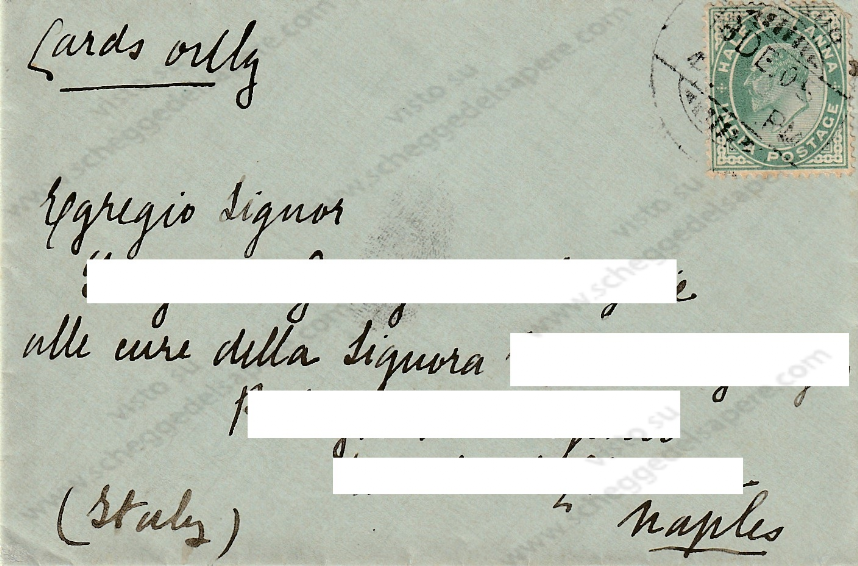 Cards only
HALF ANNA
DE 05
PM
INDIA POSTAGE
Egregio Signor
alle cure della Signora
(Italy)
Naples
visto su
www.scheggedelsapere.com